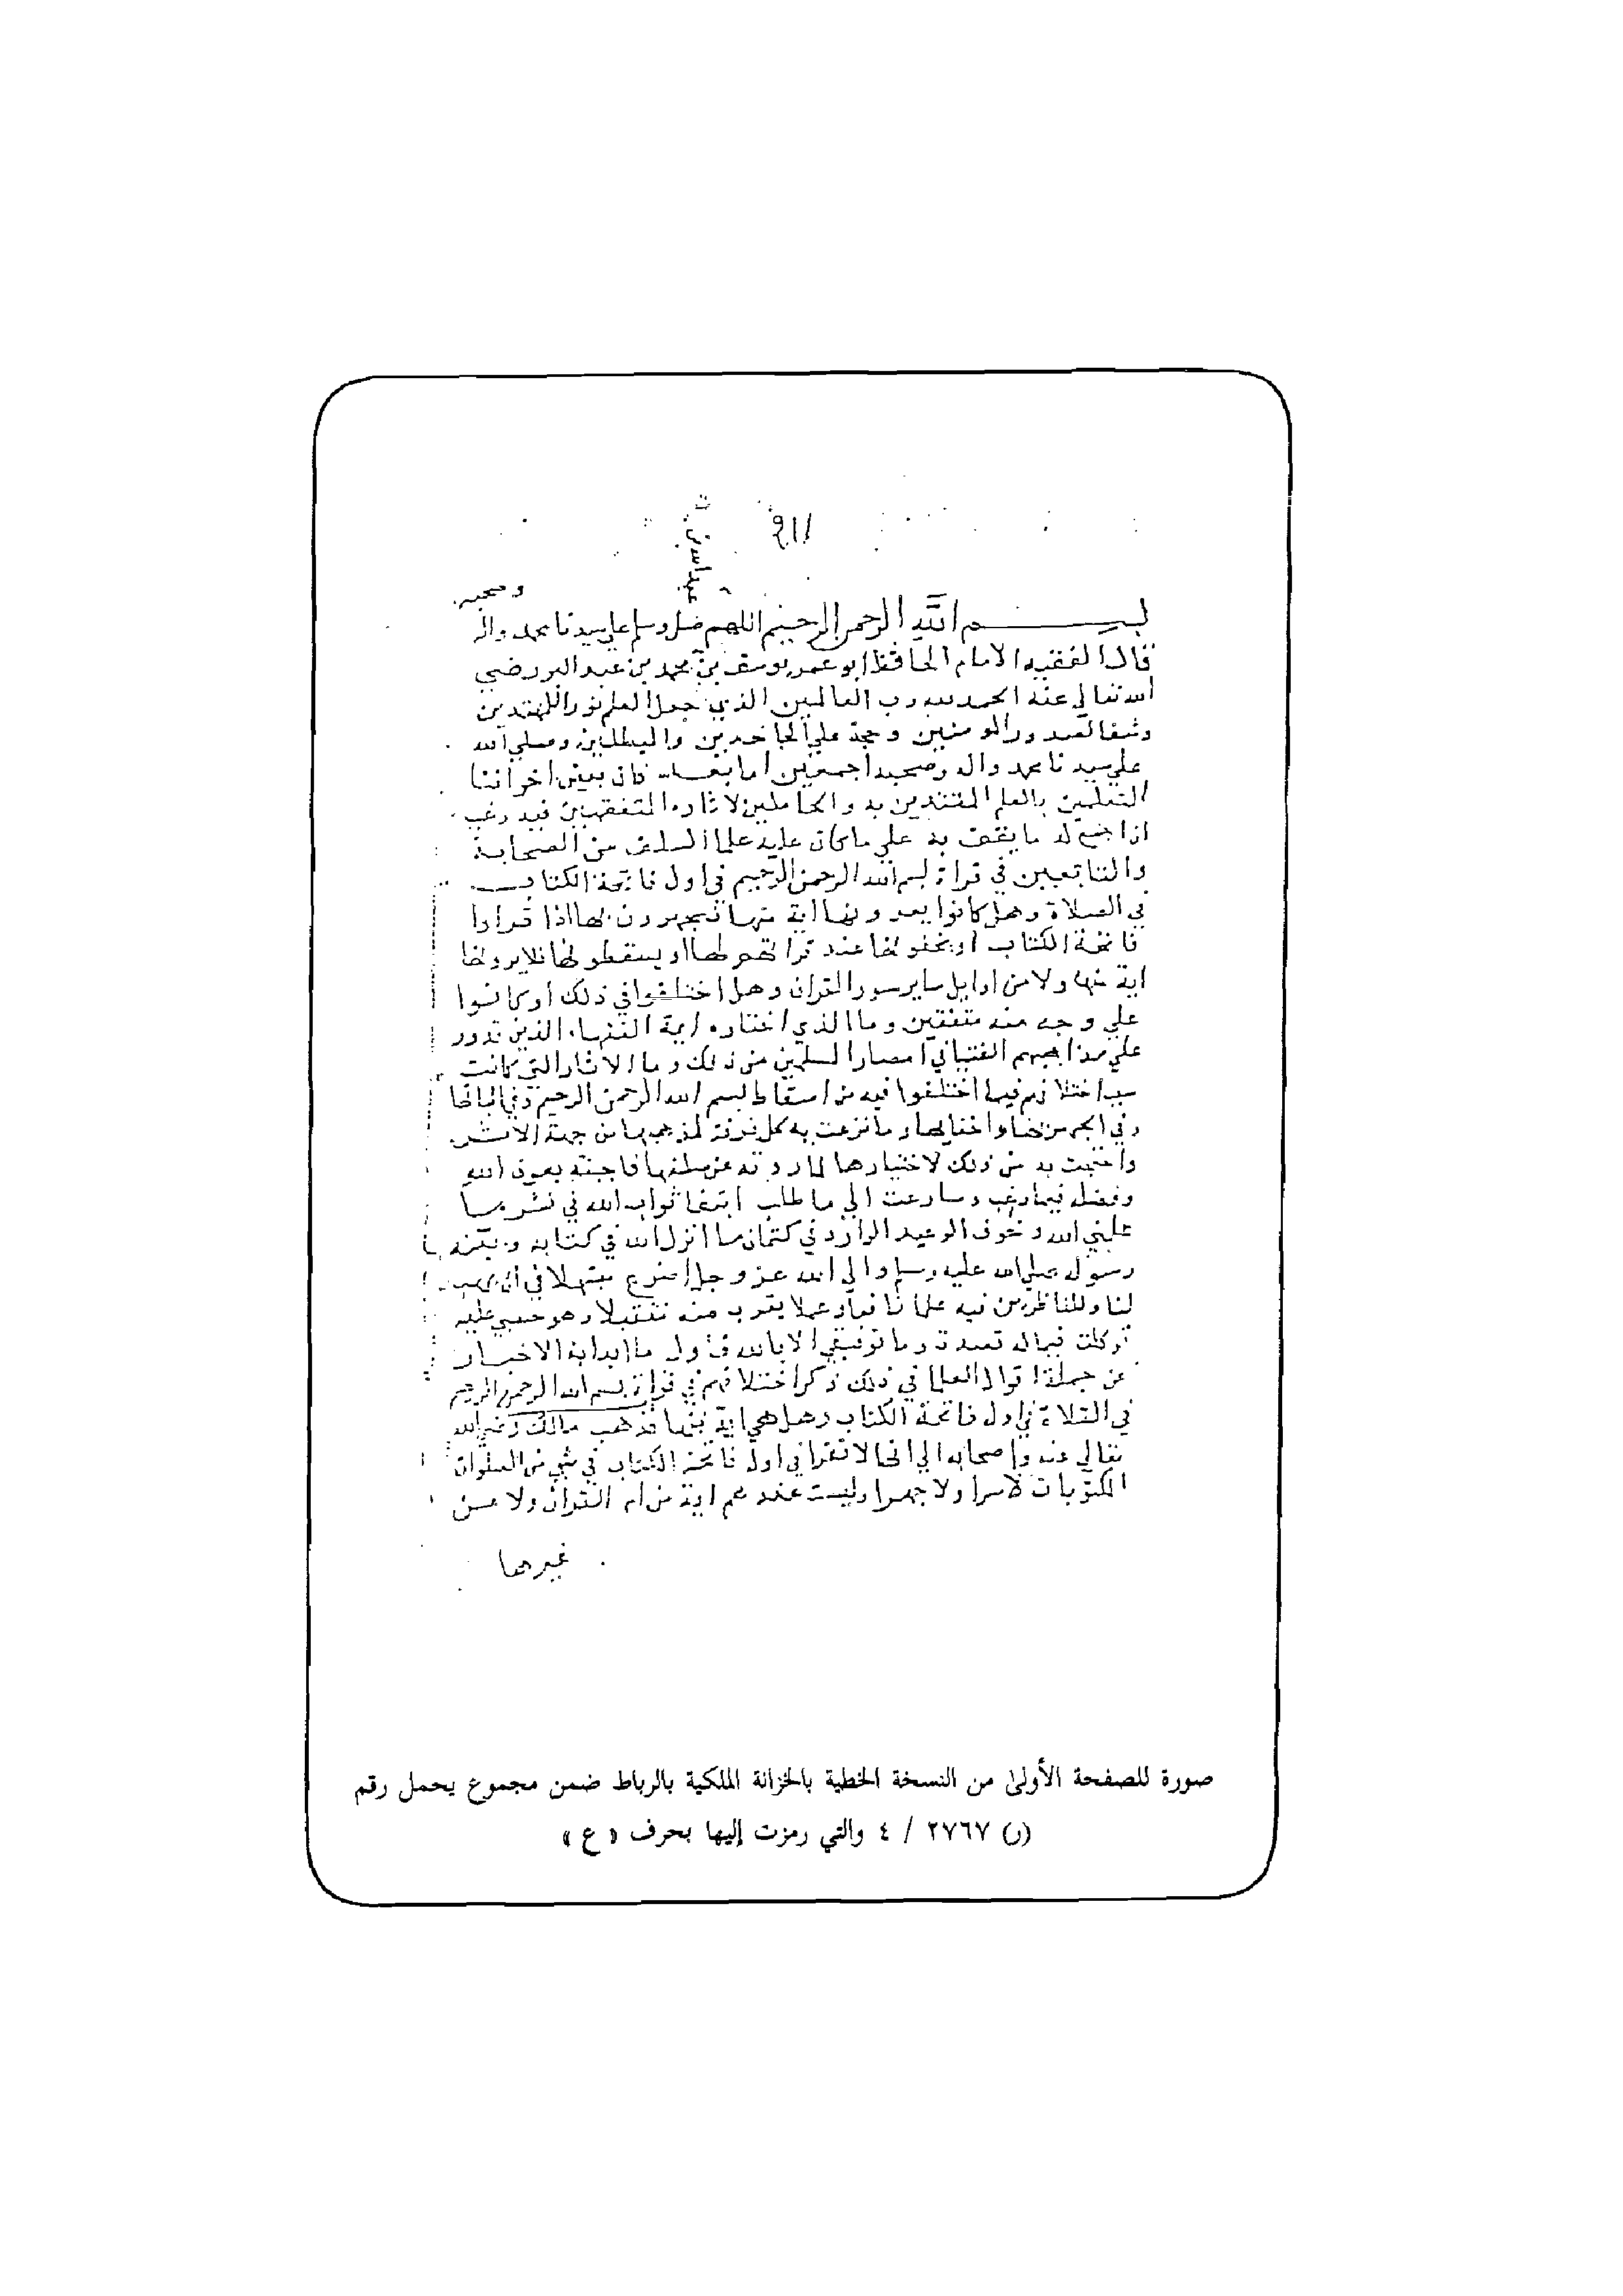 وصحبه
بسم الله الرحمن الرحيم اللهم صل وسلم علي سيدنا محمد واله
قال الفقيه الامام الحافظ ابو عمر يوسف بن محمد بن عبد البر رضي
الله تعالي عنه الحمد لله رب العالمين الذي جعل العلم نورا للمهتدين
وشفا لصدور المومنين وحجة علي الجاحدين والمبطلين وصلي الله
علي سيدنا محمد واله وصحبه اجمعين اما بعد فان بعض اخواننا
المتعلمين بالعلم المقتدين به والحاملين لاثاره المتفقهين فيه رغب
ان اجمع له ما يقف به علي ما كان عليه علما السلف من الصحابة
والتابعين في قراة بسم الله الرحمن الرحيم في اول فاتحة الكتاب
في الصلاة وهل كانوا يعدونها اية منها فيجهرون بها اذا قراوا
فاتحة الكتاب او يخفونها عند قراتهم لها او يسقطونها فلا يرونها
اية منها ولا من اوايل ساير سور القران وهل اختلفوا في ذلك او كانوا
علي وجه منه متفقين وما الذي اختاره اية الفقهاء الذين تدور
علي مذاهبهم الفتيا في امصار المسلمين من ذلك وما الاثار التي كانت
سبب اختلافهم فيما اختلفوا فيه من اسقاط بسم الله الرحمن الرحيم وفي اثباتها
وفي الجهر بها واخفايها وما نزعت به كل فرقة لمذهبها من جهة الاثر
واحتجت به من ذلك لاختيارها لما روته عن سلفها فاجبته بعون الله
وفضله فيما رغب وسارعت الي ما طلب ابتغا ثواب الله في نشر ما
علمني الله وخوف الوعيد الوارد في كتمان ما انزل الله في كتابه وبينه
رسول صلي الله عليه وسلم والي الله عز وجل اضرع مبتهلا في ان يهب
لنا وللناظرين فيه علما نافعا وعملا يقرب منه متقبلا وهو حسبي عليه
توكلت فيما له تصدت وما توفيقي الا بالله فاول ما ابدا به الاخبار
عن جملة اقوال العلما في ذلك ذكر اختلافهم في قراة بسم الله الرحمن الرحيم
في الصلاة في اول فاتحة الكتاب وهل هي اية منها فذهب مالك رضي الله
تعالي عنه واصحابه الي انها لا تقرا في اول فاتحة الكتاب في شي من الصلوات
المكتوبات لا سرا ولا جهرا وليست عندهم اية من ام القران ولا من
غيرها
صورة للصفحة الأولى من النسخة الخطية بالخزانة الملكية بالرباط ضمن مجموع يحمل رقم
(ر) ٢٧٦٧ / ٤ والتي رمزت إليها بحرف «ع»